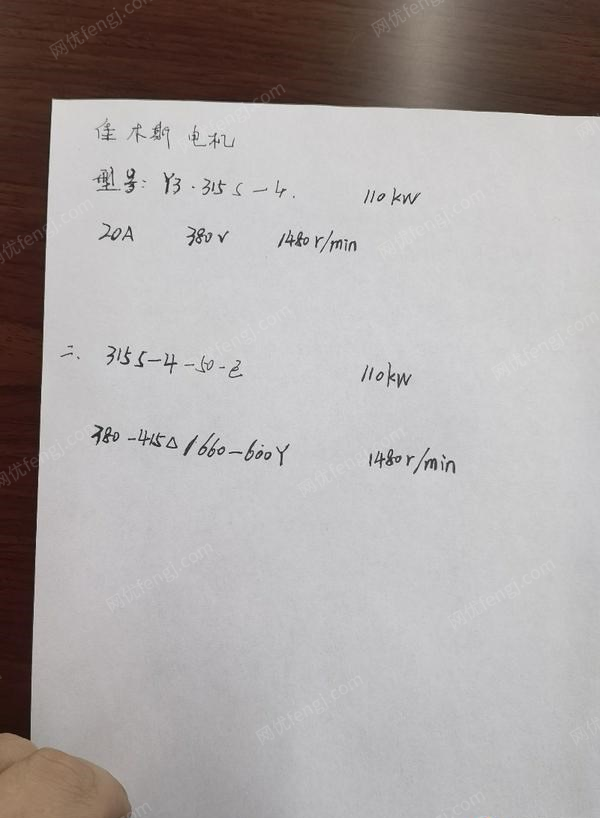 佳木斯电机
型号: Y3·315S-4. 110kW
20A 380V 1480r/min
二. 315S-4-50-E 110kW
380-415△/660-600Y 1480r/min
网优fengj.com